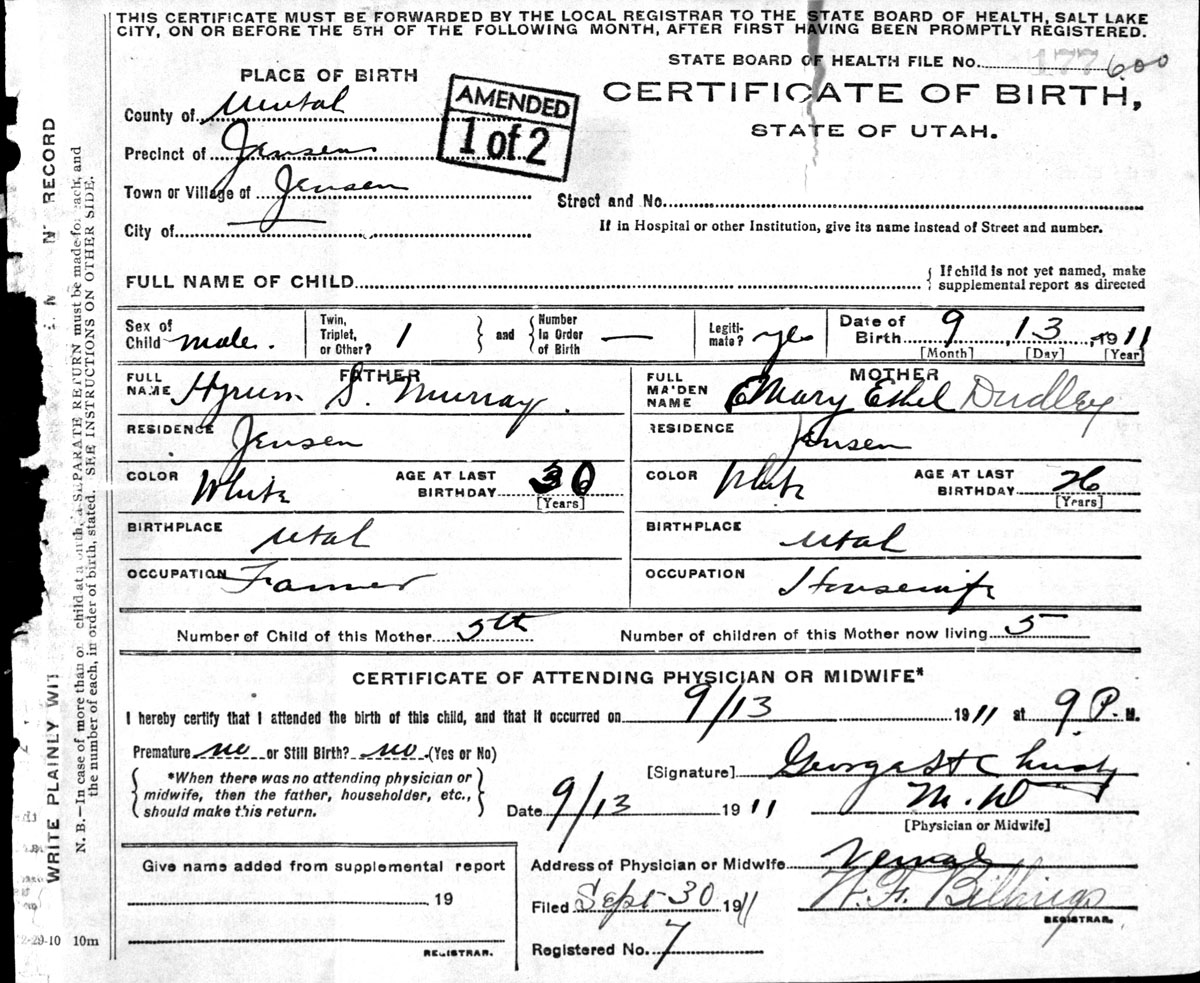 THIS CERTIFICATE MUST BE FORWARDED BY THE LOCAL REGISTRAR TO THE STATE BOARD OF HEALTH, SALT LAKE
CITY, ON OR BEFORE THE 5TH OF THE FOLLOWING MONTH, AFTER FIRST HAVING BEEN PROMPTLY REGISTERED.
STATE BOARD OF HEALTH FILE No. 177 600
PLACE OF BIRTH
AMENDED
1 of 2
CERTIFICATE OF BIRTH,
STATE OF UTAH.
County of
Precinct of Jensen
Town or Village of Jensen
Street and No.
City of
If in Hospital or other Institution, give its name instead of Street and number.
FULL NAME OF CHILD
If child is not yet named, make
supplemental report as directed
Sex of Child male. Twin, Triplet, or Other? 1 and Number In Order of Birth — Legitimate? yes Date of Birth 9, 13, 1911
[Month] [Day] [Year]
FATHER
MOTHER
FULL NAME Hyrum S. Murray.
FULL MAIDEN NAME Mary Ethel Dudley
RESIDENCE Jensen
RESIDENCE Jensen
COLOR White AGE AT LAST BIRTHDAY 30 [Years]
COLOR White AGE AT LAST BIRTHDAY 26 [Years]
BIRTHPLACE Utah
BIRTHPLACE Utah
OCCUPATION Farmer
OCCUPATION Housewife
Number of Child of this Mother 5th Number of children of this Mother now living 5
CERTIFICATE OF ATTENDING PHYSICIAN OR MIDWIFE*
I hereby certify that I attended the birth of this child, and that it occurred on 9/13 1911 at 9 P. M.
Premature no or Still Birth? no (Yes or No)
*When there was no attending physician or
midwife, then the father, householder, etc.,
should make this return.
[Signature] George H
M. D
[Physician or Midwife]
Date 9/13 1911
Give name added from supplemental report
19
REGISTRAR.
Address of Physician or Midwife Vernal
Filed Sept 30 1911 W. F. Billings
REGISTRAR.
Registered No. 7
2-29-10 10m
WRITE PLAINLY WIT RECORD
N. B.—In case of more than on child at a birth, a SEPARATE RETURN must be made for each, and
the number of each, in order of birth, stated. SEE INSTRUCTIONS ON OTHER SIDE.